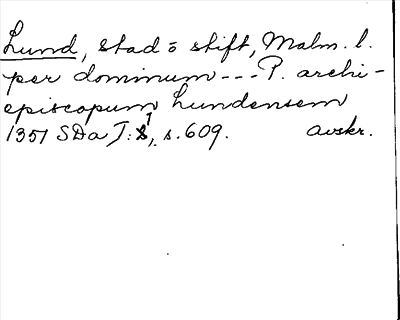 Lund, stad o stift, Malm. l.
per dominum --- P. archi-
episcopum Lundensem
1351 SDa I:1, s. 609. avskr.